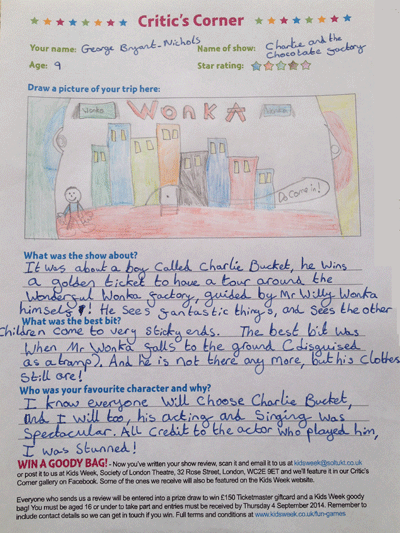 Critic's Corner
Your name: George Bryant-Nichols
Name of show: Charlie and the
Chocolate Factory
Age: 9
Star rating:
Draw a picture of your trip here:
Wonka
WONKA
Wonka
Do come in!
What was the show about?
It was about a boy called Charlie Bucket, he wins
a golden ticket to have a tour around the
wonderful Wonka factory, guided by Mr Willy Wonka
himself! He sees fantastic things, and sees the other
children come to very sticky ends.
What was the best bit?
The best bit was
when Mr Wonka falls to the ground (disguised
as a tramp). And he is not there any more, but his clothes
still are!
Who was your favourite character and why?
I know everyone will choose Charlie Bucket,
and I will too, his acting and singing was
spectacular. All credit to the actor who played him,
I was stunned!
WIN A GOODY BAG! - Now you've written your show review, scan it and email it to us at kidsweek@soltukt.co.uk
or post it to us at Kids Week, Society of London Theatre, 32 Rose Street, London, WC2E 9ET and we'll feature it in our Critic's
Corner gallery on Facebook. Some of the ones we receive will also be featured on the Kids Week website.
Everyone who sends us a review will be entered into a prize draw to win £150 Ticketmaster giftcard and a Kids Week goody
bag! You must be aged 16 or under to take part and entries must be received by Thursday 4 September 2014. Remember to
include contact details so we can get in touch if you win. Full terms and conditions at www.kidsweek.co.uk/fun-games.